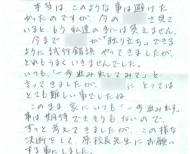 本当は、このような事は避けた
かったのですが、今の 見て
いると、もう私達の手には負えません。
今まで が"独り立ち"できる
ように試行錯誤やってきましたが、
どれもうまくいきませんでした。
いつも「一歩出み出してみて」と
言ってきましたが、 にとっては
とても難しい事でしたね
このまま家にいても「一歩出み出す」
事は期待できそうもないので、
ずっと考えてきましたが、この様な
決断をして 校長先生にお願い
する事にしました。